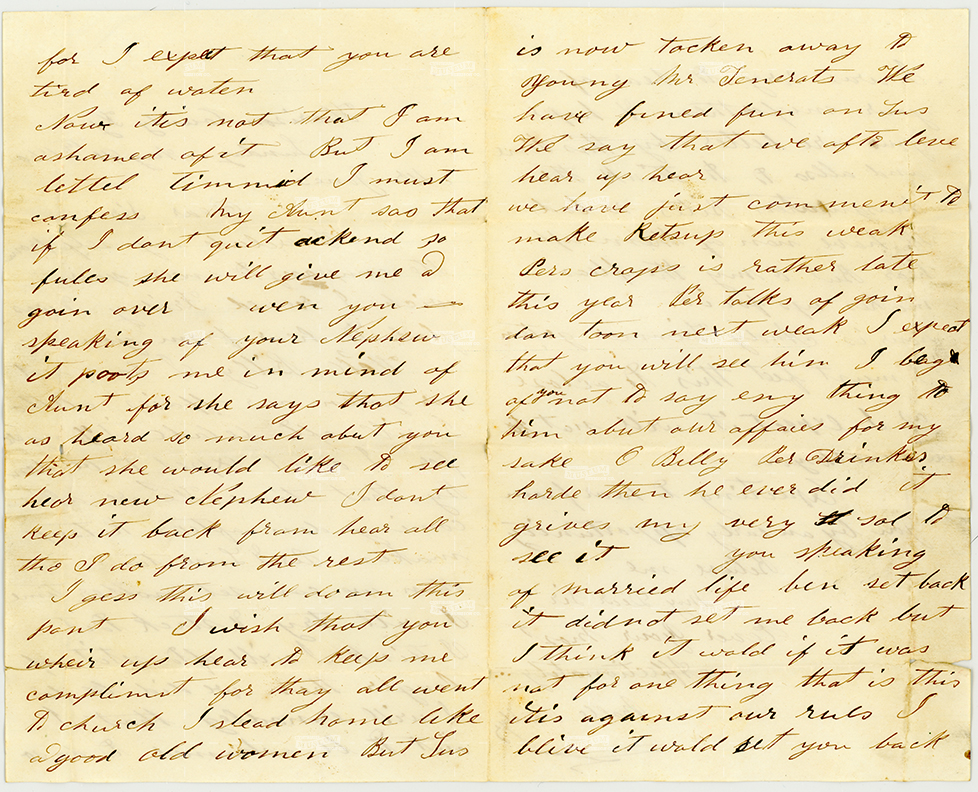 for I expett that you are
tird of waten
Now itis not that I am
ashamed ofit But I am
lettel timmid I must
confess My Aunt sao that
if I dont quit ackend so
fules she will give me a
goin over wen you —
speaking of your Nephew
it poots me in mind of
Aunt for she says that she
as heard so much abut you
that she would like to see
hear new Nephew I dont
keep it back from hear all
tho I do from the rest
I gess this will do am this
pant I wish that you
wheir up hear to keep me
complimt for thay all went
to church I stead home like
a good old women But Sus
is now tacken away to
young Mr Tenerats We
have fined fun on Sus
We say that we afto leve
hear up hear
we have just commen't to
make Ketsup this weak
Pers craps is rather late
this year Per talks of goin
dan toon next weak I expect
that you will see him I bag
of you not to say eny thing to
him abut our affaies for my
sake O Billy Per Drinker
harde then he ever did it
grives my very sol to
see it you speaking
of married life ben set back
it didnot set me back but
I think it wald if it was
not for one thing that is this
itis against our ruls I
blive it wald set you back